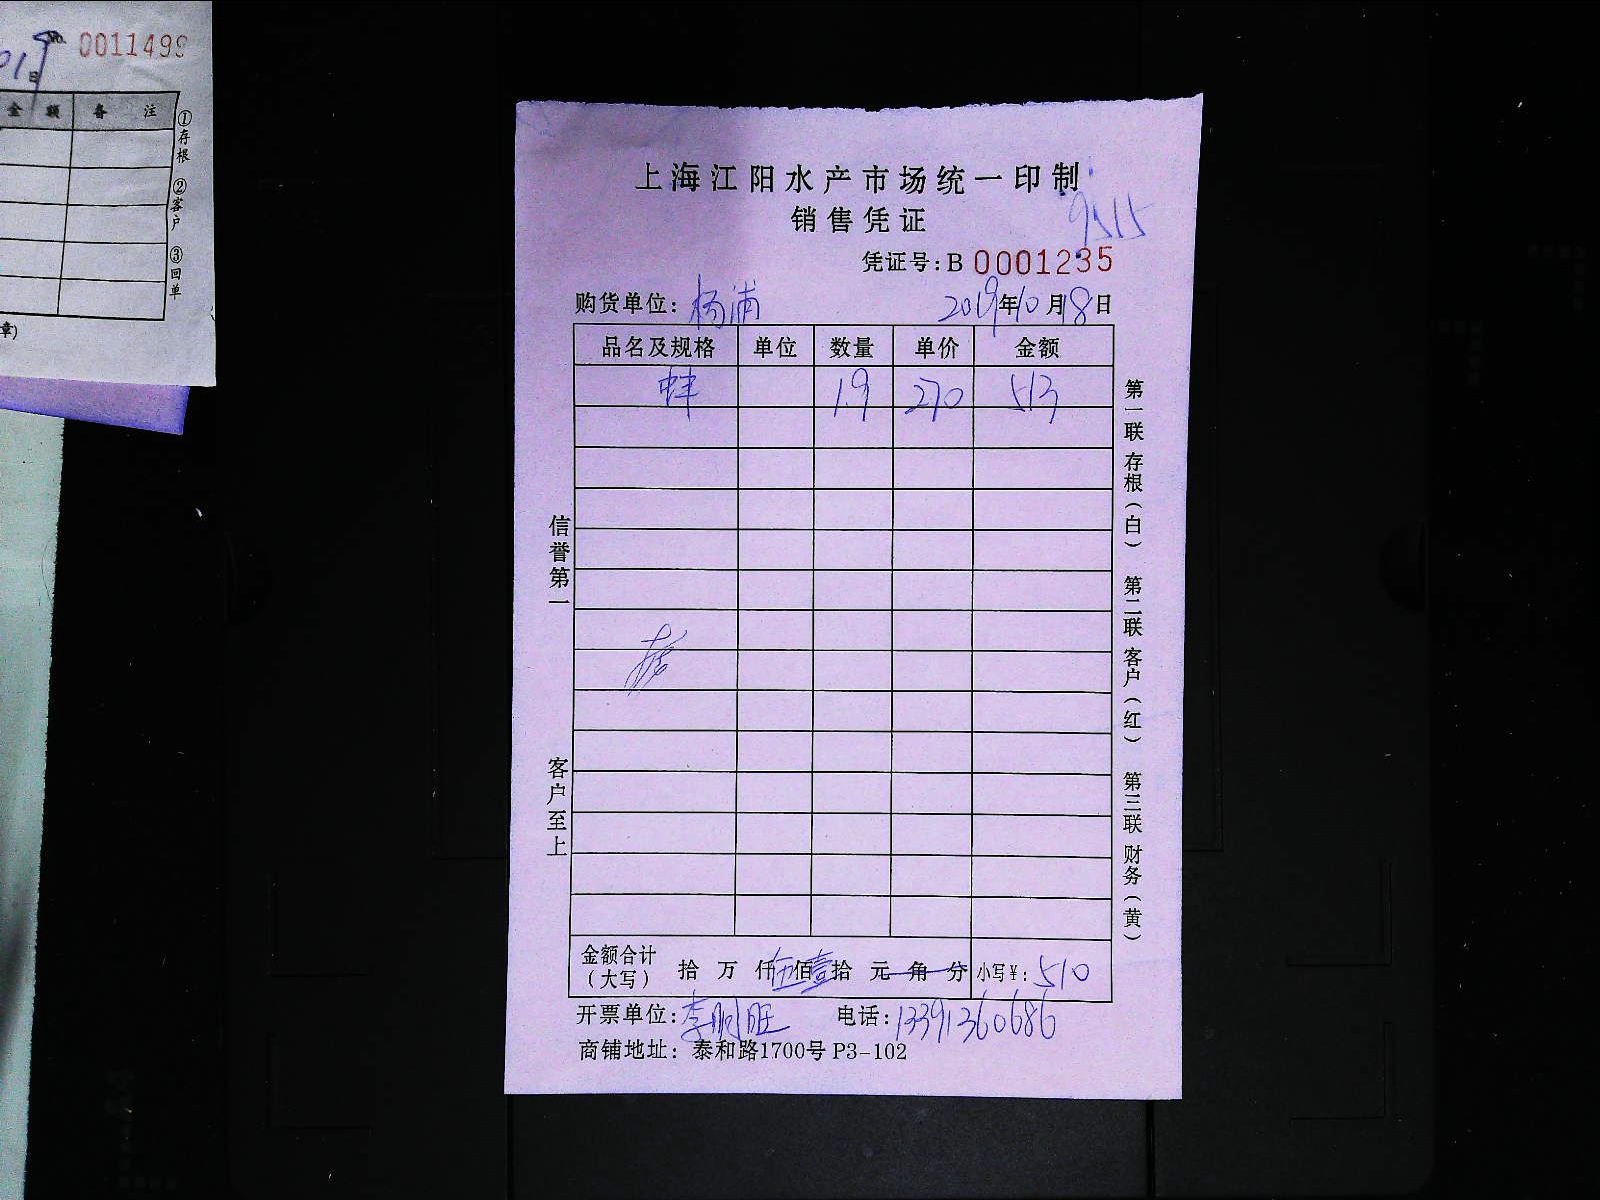 No. 0011499
019
日
金额 备注
①存根 ②客户 ③回单
章)
上海江阳水产市场统一印制
销售凭证
9515
凭证号:B 0001235
购货单位: 杨浦 2019年10月18日
品名及规格 单位 数量 单价 金额
蚌 1.9 270 513
信誉第一 客户至上
第一联 存根(白) 第二联 客户(红) 第三联 财务(黄)
金额合计
(大写) 拾 万 仟伍佰壹拾 元 角 分 小写¥: 510
开票单位: 李明旺 电话: 13391360686
商铺地址: 泰和路1700号 P3-102